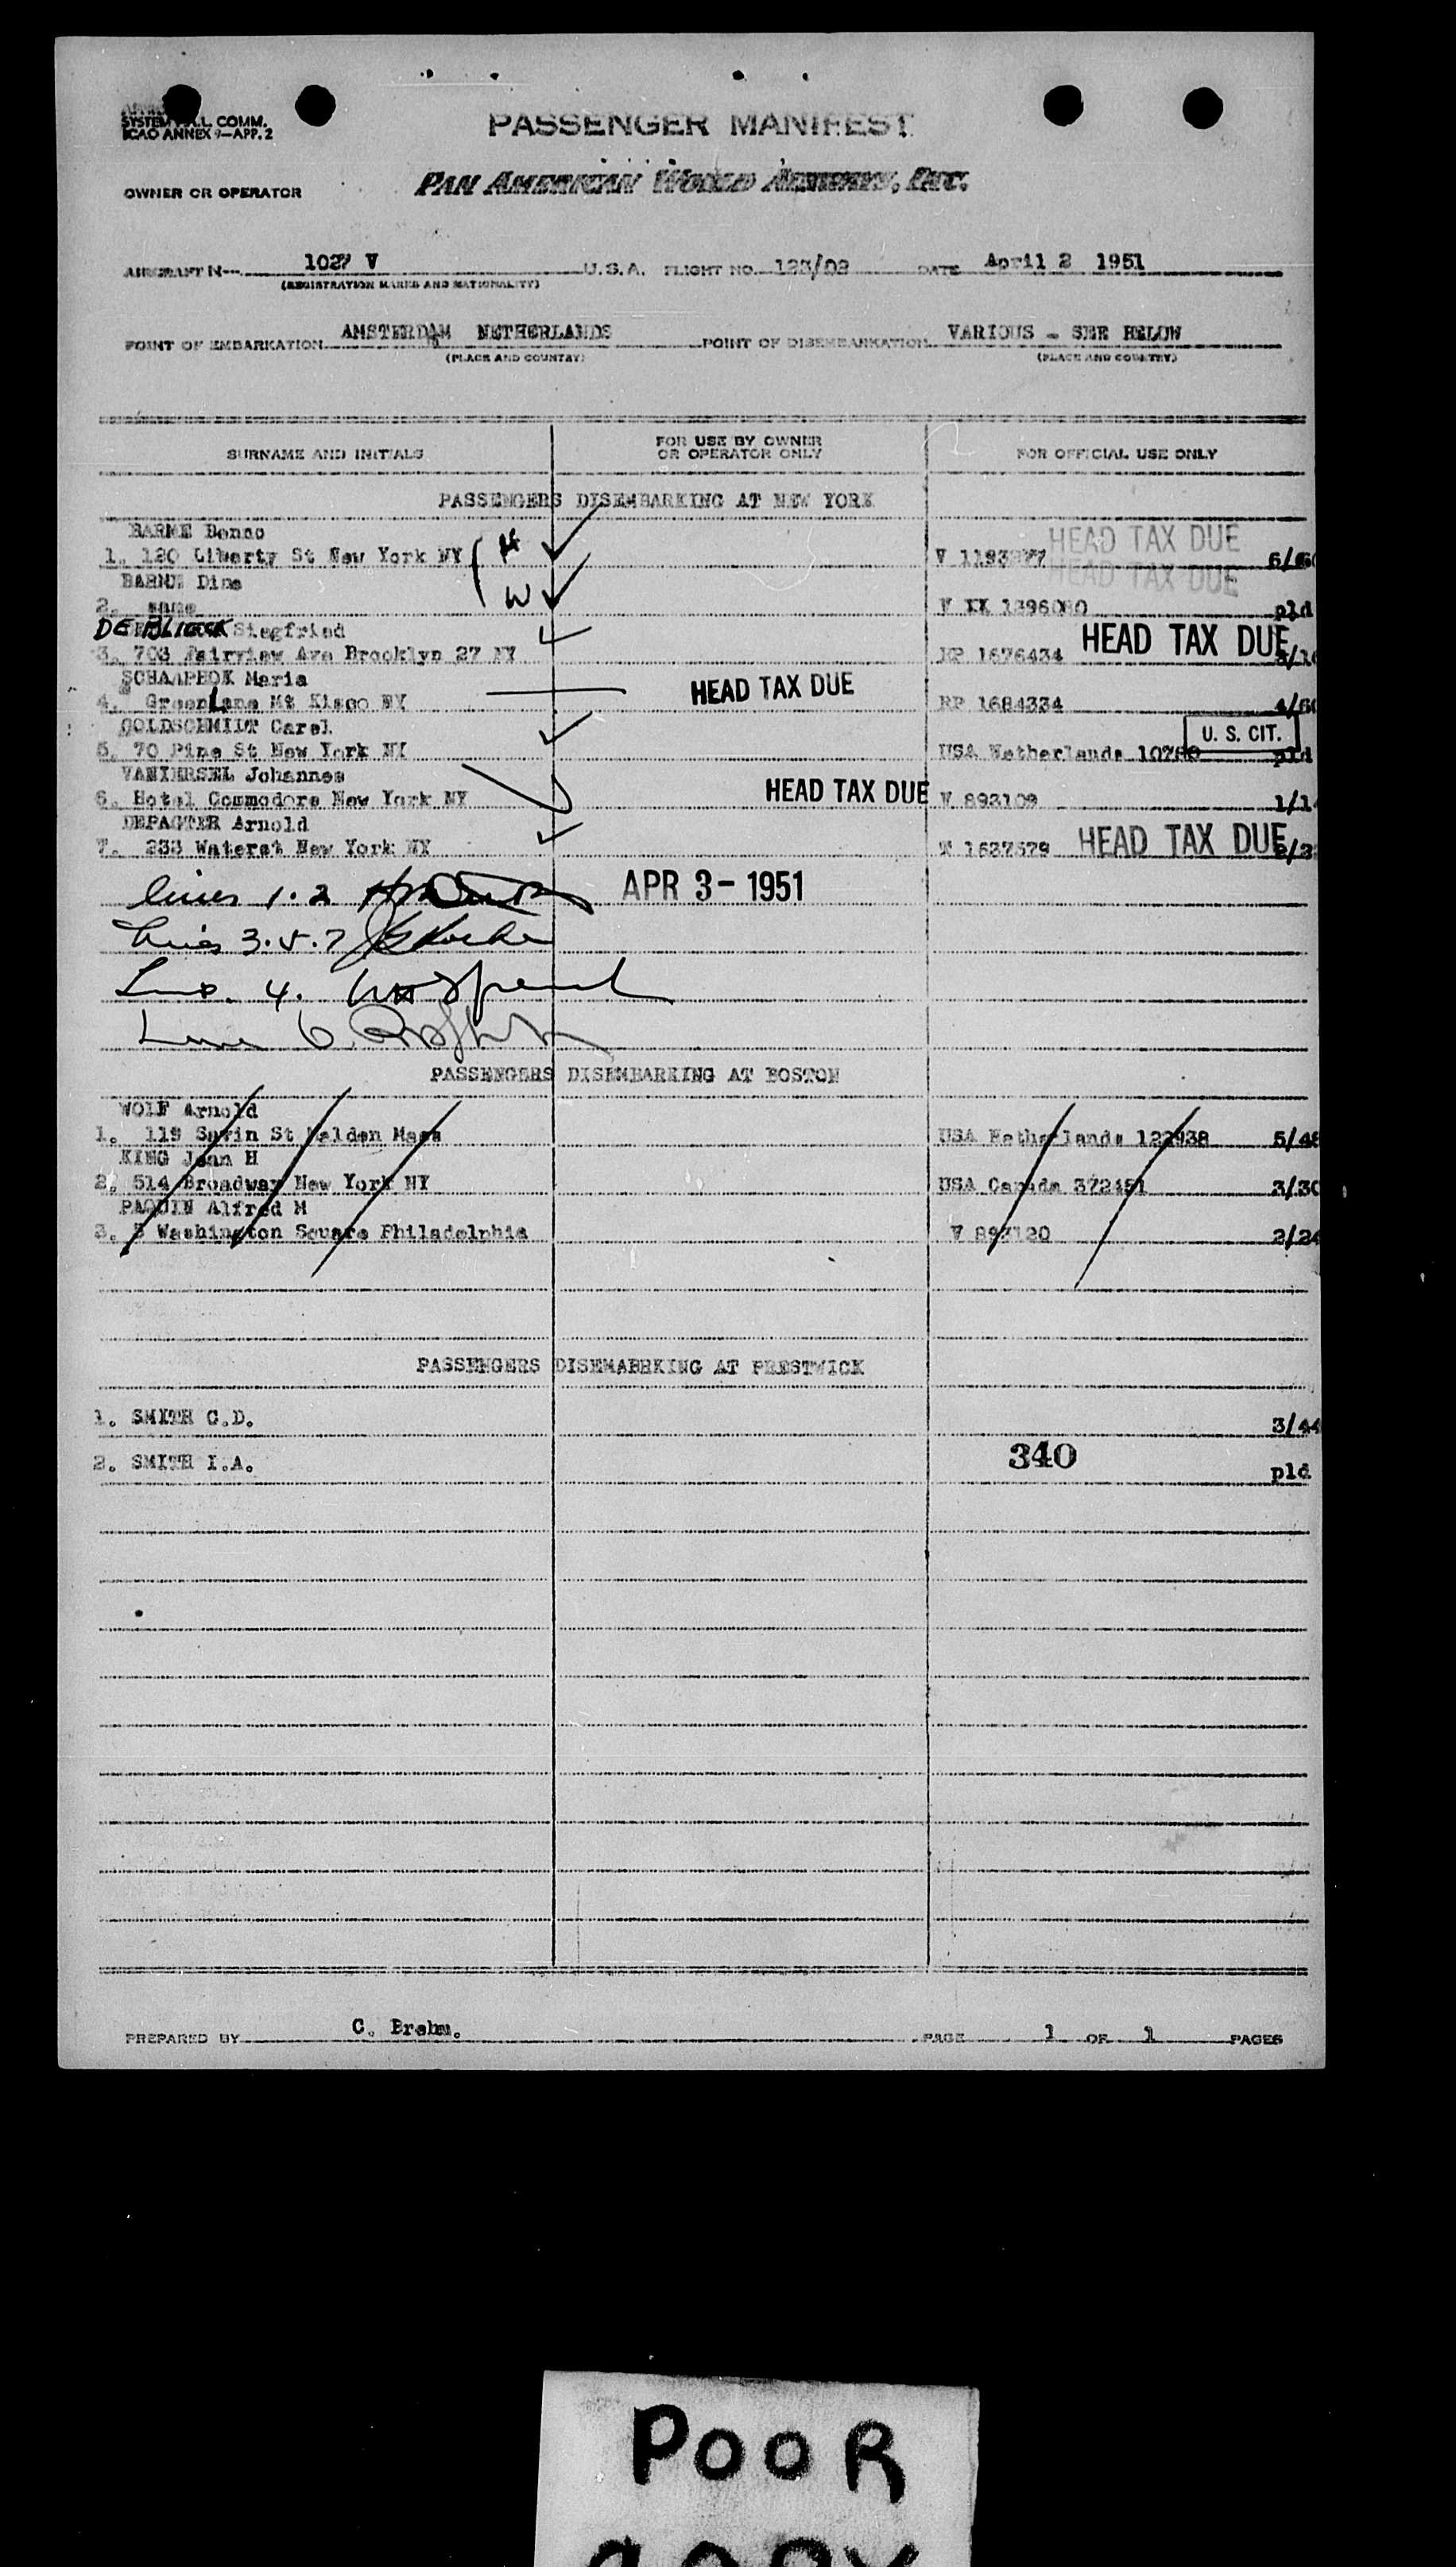 SYSTEM ALL COMM.
ICAO ANNEX 9—APP. 2
PASSENGER MANIFEST
OWNER OR OPERATOR
PAN AMERICAN WORLD AIRWAYS, INC.
AIRCRAFT N— 1027 V U.S.A. FLIGHT NO. 123/02 DATE April 2 1951
(REGISTRATION MARKS AND NATIONALITY)
POINT OF EMBARKATION AMSTERDAM NETHERLANDS POINT OF DISEMBARKATION VARIOUS - SEE BELOW
(PLACE AND COUNTRY) (PLACE AND COUNTRY)
SURNAME AND INITIALS FOR USE BY OWNER OR OPERATOR ONLY FOR OFFICIAL USE ONLY
PASSENGERS DISEMBARKING AT NEW YORK
BARNE Benno HEAD TAX DUE
1. 120 Liberty St New York NY H V
BARNE Dina HEAD TAX DUE
2. same W pld
DE Siegfried HEAD TAX DUE
3. 703 Fairview Ave Brooklyn 27 NY RP 1676434
SCHAAPHOK Maria HEAD TAX DUE
4. Green Lane Mt Kisco NY RP 1684334
GOLDSCHMIDT Carel U. S. CIT.
5. 70 Pine St New York NY USA Netherlands pld
VANIERSEL Johannes HEAD TAX DUE
6. Hotel Commodore New York NY V 893109 1/14
DEPAGTER Arnold HEAD TAX DUE
7. 233 Waterst New York NY
lines 1.2 APR 3- 1951
lines 3.5.7
Line 4.
Line 6
PASSENGERS DISEMBARKING AT BOSTON
WOLF Arnold
1. 119 Savin St Malden Mass USA Netherlands 122938 5/48
KING Jean H
2. 514 Broadway New York NY USA Canada 372451 3/30
PAQUIN Alfred M
3. Washington Square Philadelphia V 893120 2/24
PASSENGERS DISEMABRKING AT PRESTWICK
1. SMITH C.D. 3/44
2. SMITH I.A. 340 pld
PREPARED BY C. Brehm. PAGE 1 OF 1 PAGES
POOR
COPY